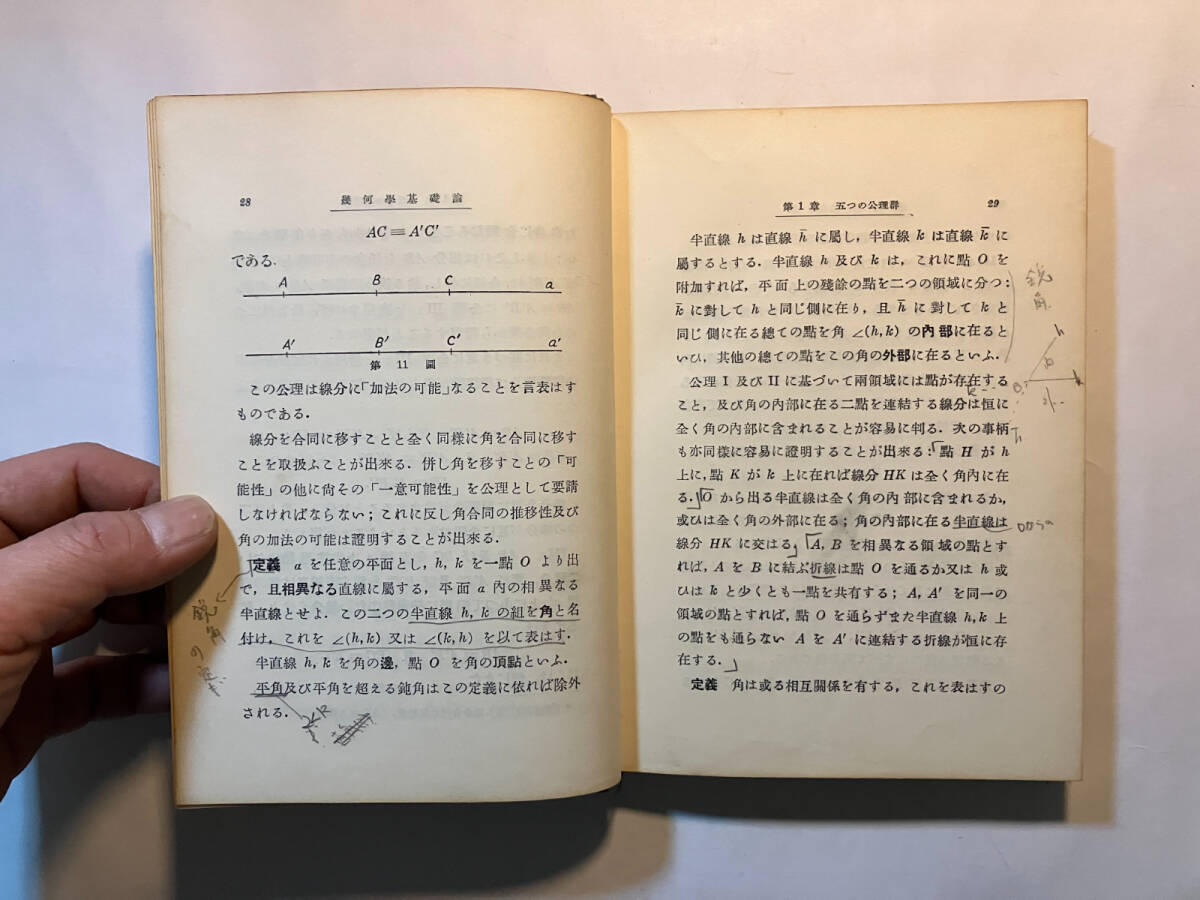 28 幾何學基礎論
AC≡A′C′
である.
A B C a
A′ B′ C′ a′
第 11 圖
この公理は線分に「加法の可能」なることを言表はす
ものである.
線分を合同に移すことと全く同様に角を合同に移す
ことを取扱ふことが出來る. 併し角を移すことの「可
能性」の他に尙その「一意可能性」を公理として要請
しなければならない; これに反し角合同の推移性及び
角の加法の可能は證明することが出來る.
定義 α を任意の平面とし, h, k を一點 O より出
で, 且相異なる直線に屬する, 平面 α 內の相異なる
半直線とせよ. この二つの半直線 h, k の組を角と名
付け, これを ∠(h, k) 又は ∠(k, h) を以て表はす.
半直線 h, k を角の邊, 點 O を角の頂點といふ.
平角及び平角を超える鈍角はこの定義に依れば除外
される.
鋭角
の
第1章 五つの公理群 29
半直線 h は直線 h̄ に屬し, 半直線 k は直線 k̄ に
屬するとする. 半直線 h 及び k は, これに點 O を
附加すれば, 平面上の殘餘の點を二つの領域に分つ:
k̄ に對して h と同じ側に在り, 且 h̄ に對して k と
同じ側に在る總ての點を角 ∠(h, k) の內部に在ると
いひ, 其他の總ての點をこの角の外部に在るといふ.
公理 I 及び II に基づいて兩領域には點が存在する
こと, 及び角の內部に在る二點を連結する線分は恒に
全く角の內部に含まれることが容易に判る. 次の事柄
も亦同樣に容易に證明することが出來る:「點 H が h
上に, 點 K が k 上に在れば線分 HK は全く角內に在
る.」「O から出る半直線は全く角の內部に含まれるか,
或ひは全く角の外部に在る; 角の內部に在る半直線は
線分 HK に交はる」「A, B を相異なる領域の點とす
れば, A を B に結ぶ折線は點 O を通るか又は h 或
ひは k と少くとも一點を共有する; A, A′ を同一の
領域の點とすれば, 點 O を通らずまた半直線 h, k 上
の點をも通らない A を A′ に連結する折線が恒に存
在する.」
定義 角は或る相互關係を有する, これを表はすの
鋭角
h
k
O
h̄
Oからの